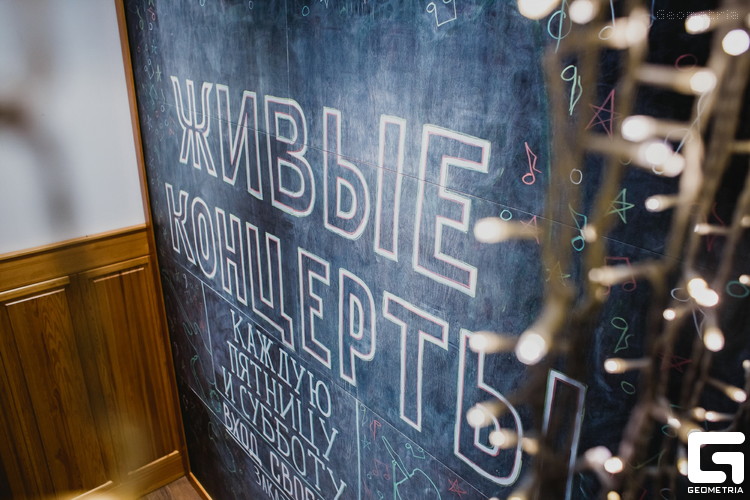 Geometria
ЖИВЫЕ
КОНЦЕРТЫ
КАЖДУЮ
ПЯТНИЦУ
И СУББОТУ
ВХОД
GEOMETRIA